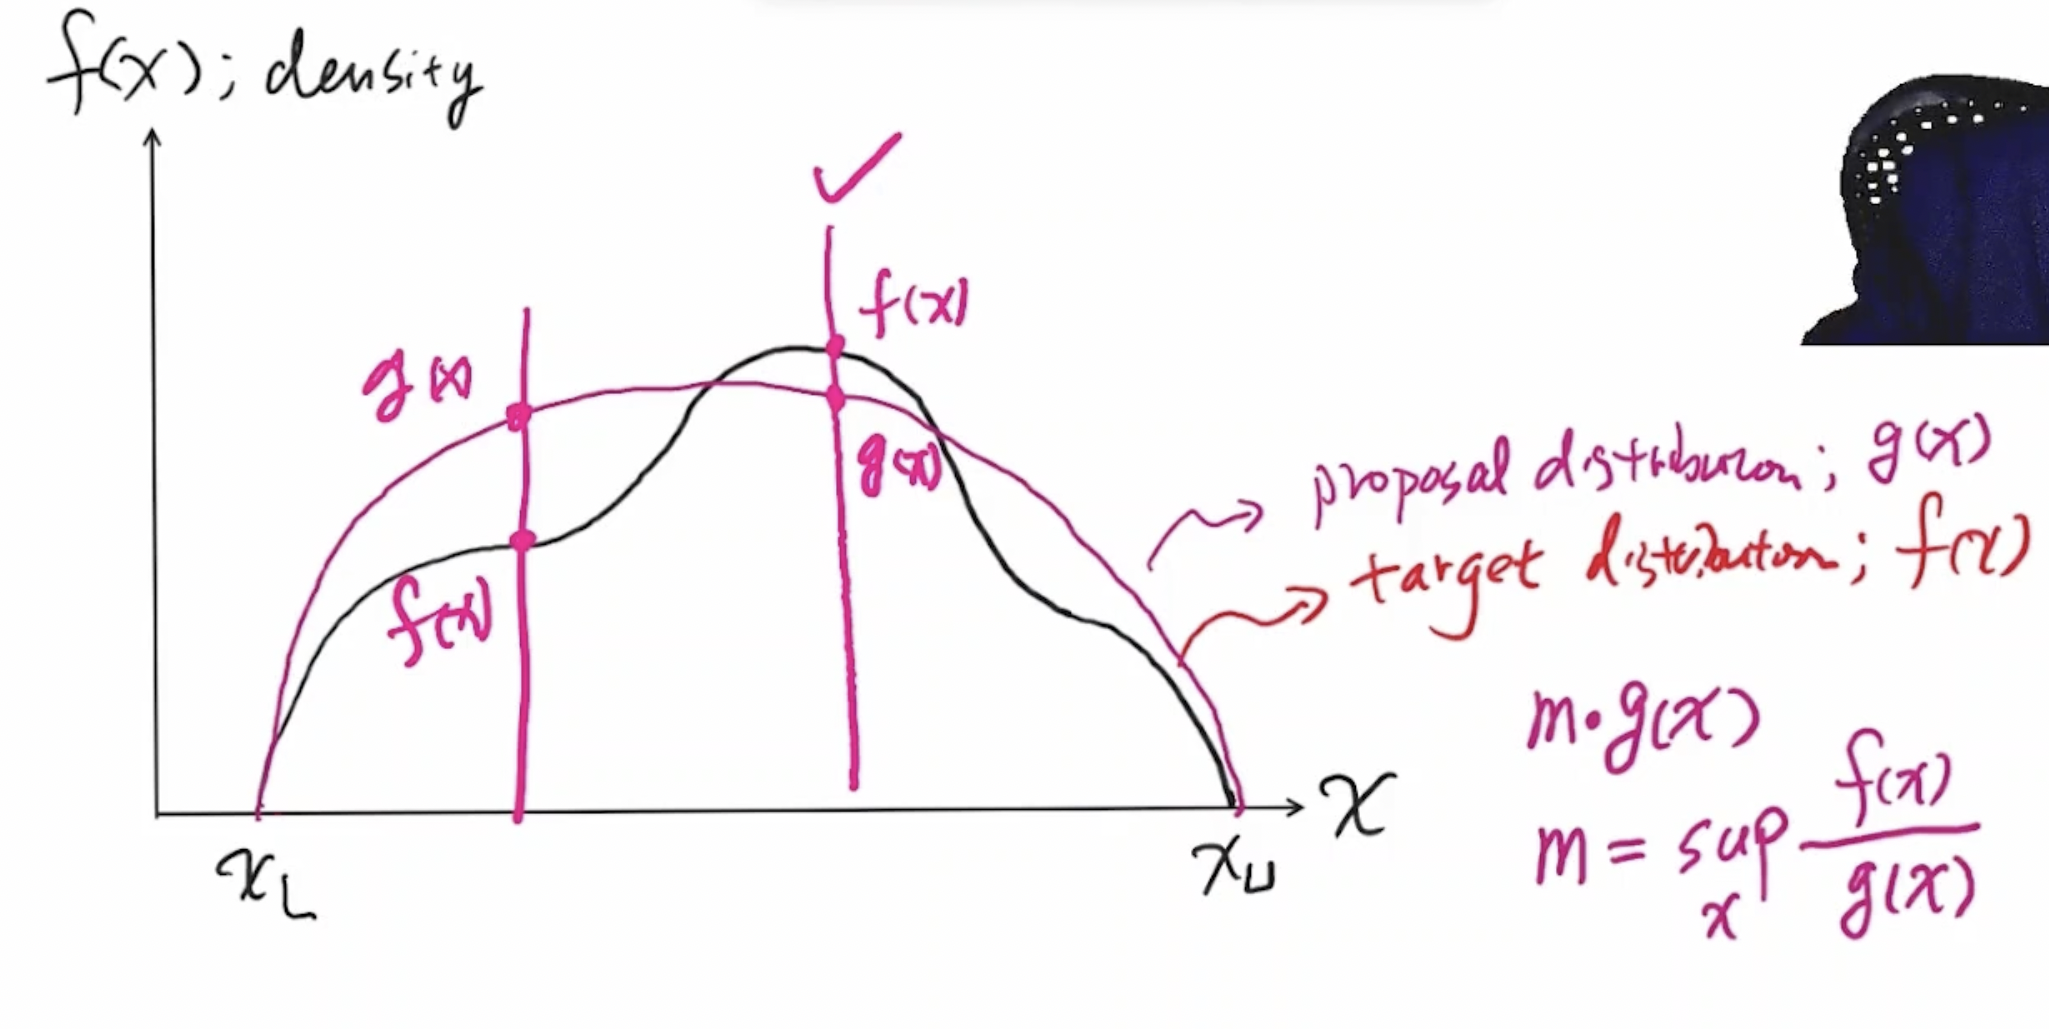 f(x); density
f(x)
g(x)
g(x)
f(x)
proposal distribution; g(x)
target distribution; f(x)
m·g(x)
m = sup f(x)
x g(x)
x
x_L
x_U